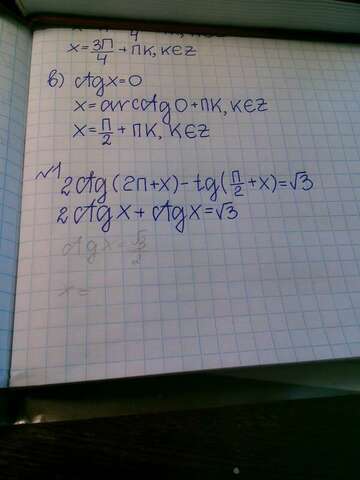 x = 3π/4 + πk, k∈Z
в) ctg x = 0
x = arcctg 0 + πk, k∈Z
x = π/2 + πk, k∈Z
№1
2ctg(2π+x) - tg(π/2+x) = √3
2ctg x + ctg x = √3
ctg x = √3/2
x =